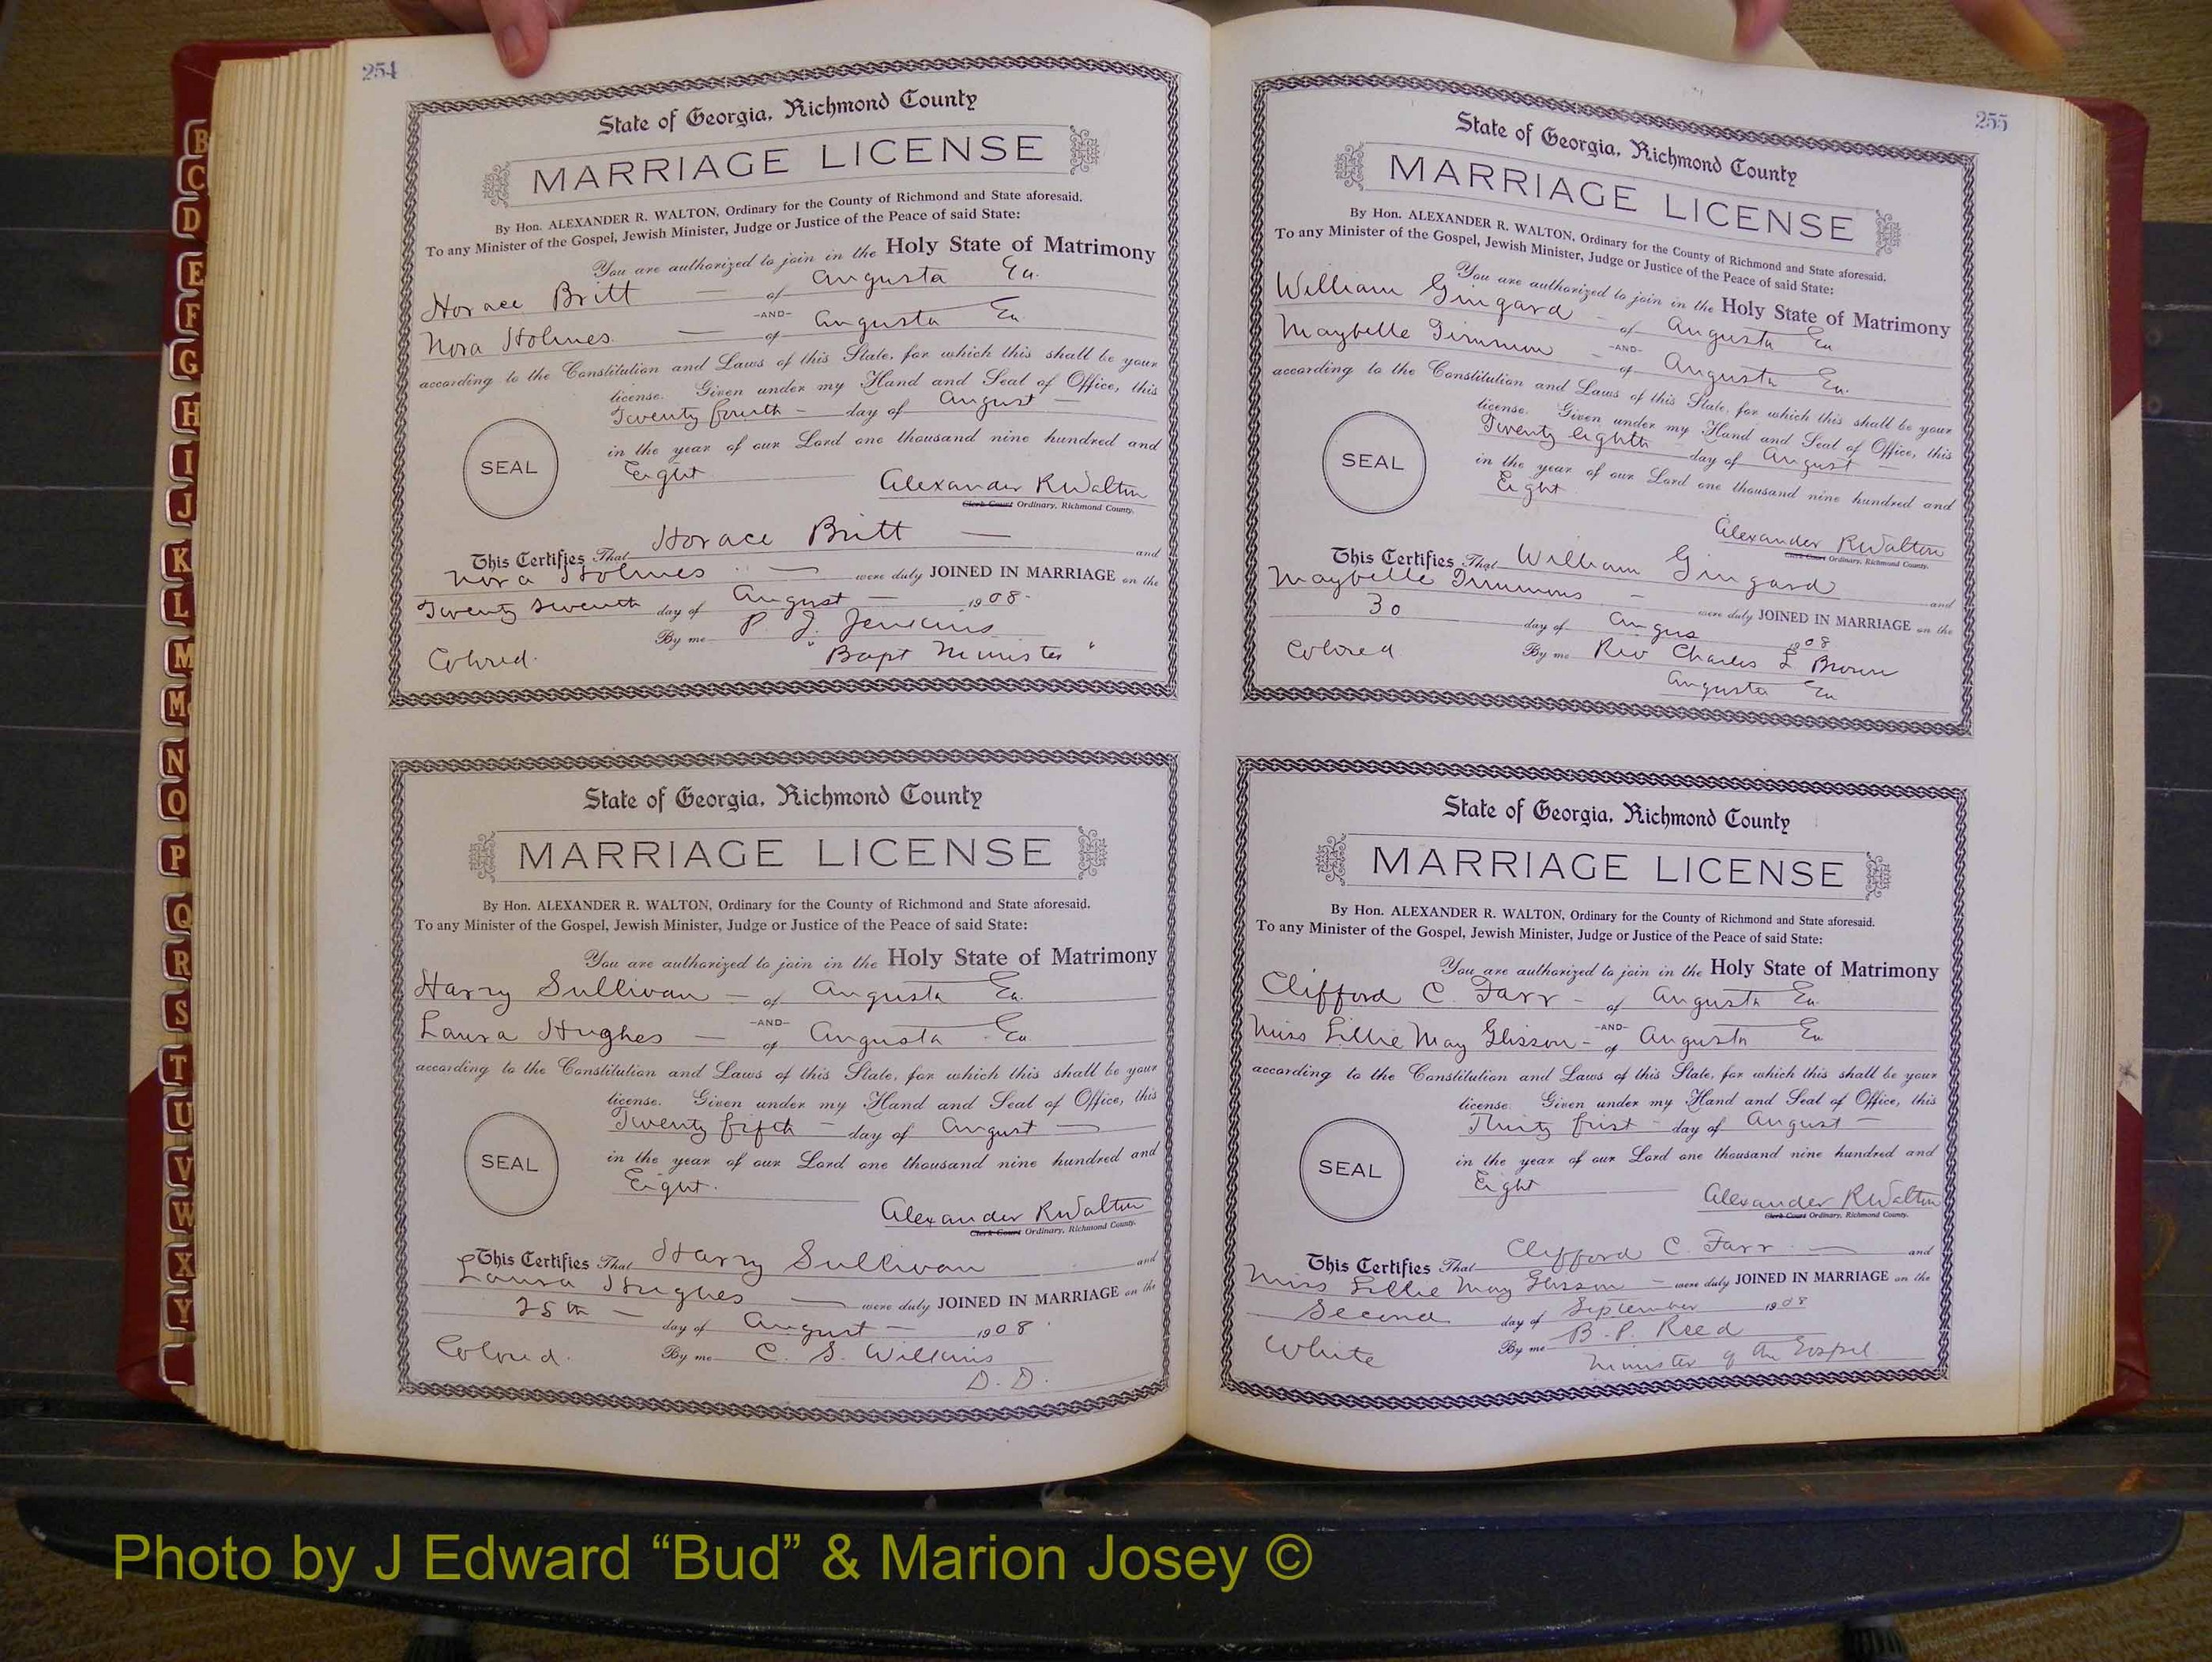 254
State of Georgia, Richmond County
MARRIAGE LICENSE
By Hon. ALEXANDER R. WALTON, Ordinary for the County of Richmond and State aforesaid.
To any Minister of the Gospel, Jewish Minister, Judge or Justice of the Peace of said State:
You are authorized to join in the Holy State of Matrimony
Horace Britt — of Augusta Ga.
-AND-
Nora Holmes — of Augusta Ga
according to the Constitution and Laws of this State, for which this shall be your
license. Given under my Hand and Seal of Office, this
Twenty fourth — day of August —
in the year of our Lord one thousand nine hundred and
SEAL
Eight
Alexander R Walton
Clerk Court Ordinary, Richmond County.
This Certifies That Horace Britt — and
Nora Holmes — were duly JOINED IN MARRIAGE on the
Twenty seventh day of August — 1908
By me P. J. Jenkins
Colored. "Bapt Minister"
State of Georgia, Richmond County
MARRIAGE LICENSE
By Hon. ALEXANDER R. WALTON, Ordinary for the County of Richmond and State aforesaid.
To any Minister of the Gospel, Jewish Minister, Judge or Justice of the Peace of said State:
You are authorized to join in the Holy State of Matrimony
Harry Sullivan — of Augusta Ga.
-AND-
Laura Hughes — of Augusta Ga
according to the Constitution and Laws of this State, for which this shall be your
license. Given under my Hand and Seal of Office, this
Twenty fifth — day of August —
in the year of our Lord one thousand nine hundred and
SEAL
Eight.
Alexander R Walton
Clerk Court Ordinary, Richmond County.
This Certifies That Harry Sullivan and
Laura Hughes — were duly JOINED IN MARRIAGE on the
25th — day of August — 1908
Colored. By me C. S. Wilkins
D. D.
255
State of Georgia, Richmond County
MARRIAGE LICENSE
By Hon. ALEXANDER R. WALTON, Ordinary for the County of Richmond and State aforesaid.
To any Minister of the Gospel, Jewish Minister, Judge or Justice of the Peace of said State:
You are authorized to join in the Holy State of Matrimony
William Gingard — of Augusta Ga
-AND-
Maybelle Timmons — of Augusta Ga.
according to the Constitution and Laws of this State, for which this shall be your
license. Given under my Hand and Seal of Office, this
Twenty eighth day of August —
in the year of our Lord one thousand nine hundred and
SEAL
Eight
Alexander R Walton
Clerk Court Ordinary, Richmond County.
This Certifies That William Gingard and
Maybelle Timmons — were duly JOINED IN MARRIAGE on the
30 day of Augus 1908
Colored By me Rev Charles L Brown
Augusta Ga
State of Georgia, Richmond County
MARRIAGE LICENSE
By Hon. ALEXANDER R. WALTON, Ordinary for the County of Richmond and State aforesaid.
To any Minister of the Gospel, Jewish Minister, Judge or Justice of the Peace of said State:
You are authorized to join in the Holy State of Matrimony
Clifford C. Farr — of Augusta Ga
-AND-
Miss Lillie May Glisson — of Augusta Ga
according to the Constitution and Laws of this State, for which this shall be your
license. Given under my Hand and Seal of Office, this
Thirty first — day of August —
in the year of our Lord one thousand nine hundred and
SEAL
Eight
Alexander R Walton
Clerk Court Ordinary, Richmond County.
This Certifies That Clifford C. Farr — and
Miss Lillie May Glisson — were duly JOINED IN MARRIAGE on the
Second day of September 1908
White By me B. P. Reed
Minister of the Gospel
B
C
D
E
F
G
H
I
J
K
L
M
Mc
N
O
P
Q
R
S
T
U
V
W
X
Y
Photo by J Edward “Bud” & Marion Josey ©